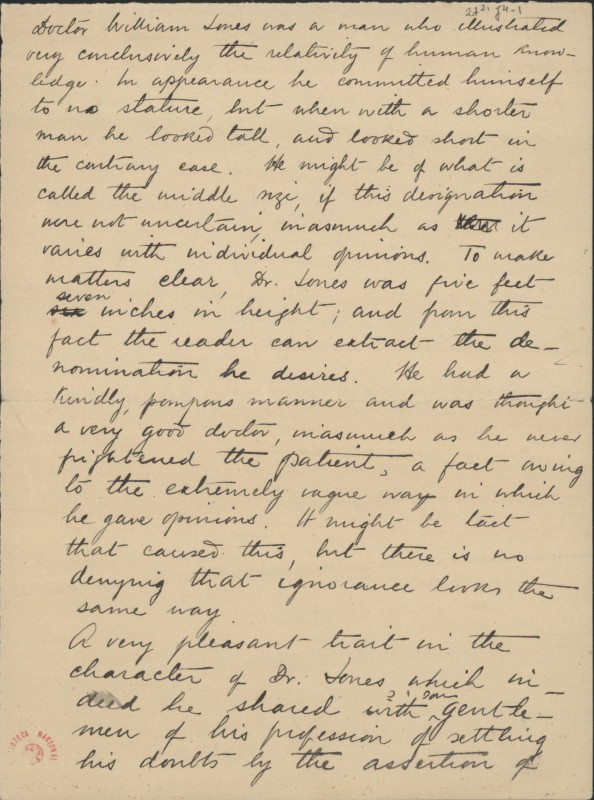 27 21 J4-1
Doctor William Jones was a man who illustrated
very conclusively the relativity of human know-
ledge. In appearance he committed himself
to no stature, but when with a shorter
man he looked tall, and looked short in
the contrary case. He might be of what is
called the middle size, if this designation
were not uncertain, inasmuch as it
varies with individual opinions. To make
matters clear, Dr. Jones was five feet
seven
six inches in height; and from this
fact the reader can extract the de-
nomination he desires. He had a
kindly, pompous manner and was thought
a very good doctor, inasmuch as he never
frightened the patient, a fact owing
to the extremely vague way in which
he gave opinions. It might be tact
that caused this, but there is no
denying that ignorance looks the
same way
A very pleasant trait in the
character of Dr. Jones which in-
deed he shared with gentle-
men of his profession of settling
his doubts by the assertion of
BIBLIOTECA NACIONAL